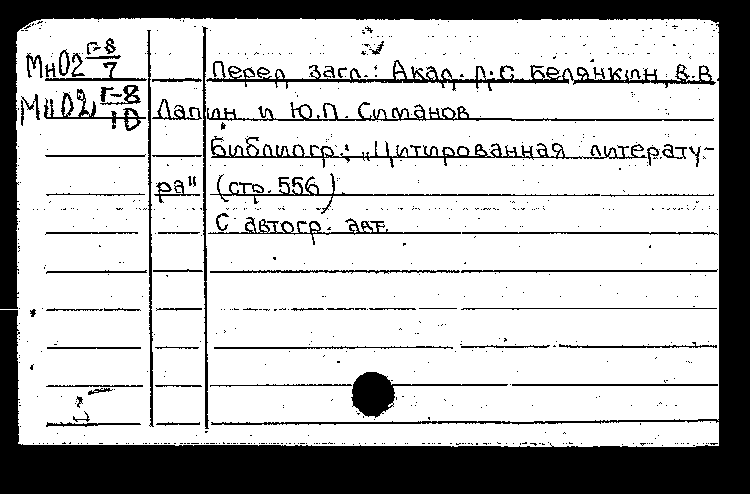 2
МнО2 г-8/7 Перед загл.: Акад. Д.С. Белянкин, В.В.
МнО2 г-8/10 Лапин и Ю.П. Симанов.
Библиогр.: „Цитированная литерату-
ра" (стр. 556).
С автогр. авт.